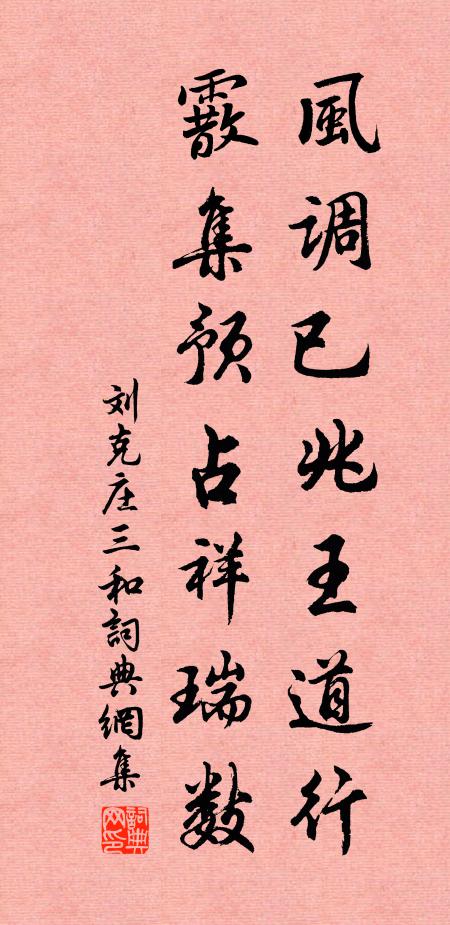 風调已兆王道行
霰集預占祥瑞數
刘克庄三和詞典網集
詞典网印